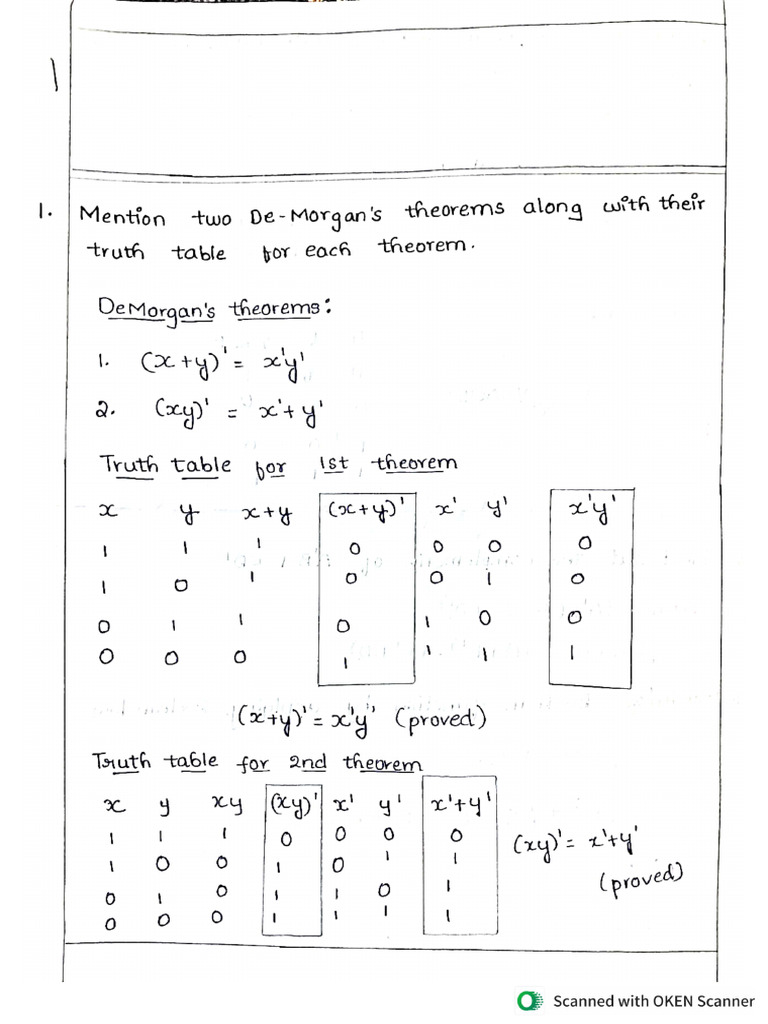 1
1. Mention two De-Morgan's theorems along with their
truth table for each theorem.
DeMorgan's theorems:
1. (x+y)' = x'y'
2. (xy)' = x'+y'
Truth table for 1st theorem
x y x+y (x+y)' x' y' x'y'
1 1 1 0 0 0 0
1 0 1 0 0 1 0
0 1 1 0 1 0 0
0 0 0 1 1 1 1
(x+y)' = x'y' (proved)
Truth table for 2nd theorem
x y xy (xy)' x' y' x'+y'
1 1 1 0 0 0 0
1 0 0 1 0 1 1
0 1 0 1 1 0 1
0 0 0 1 1 1 1
(xy)' = x'+y'
(proved)
Scanned with OKEN Scanner